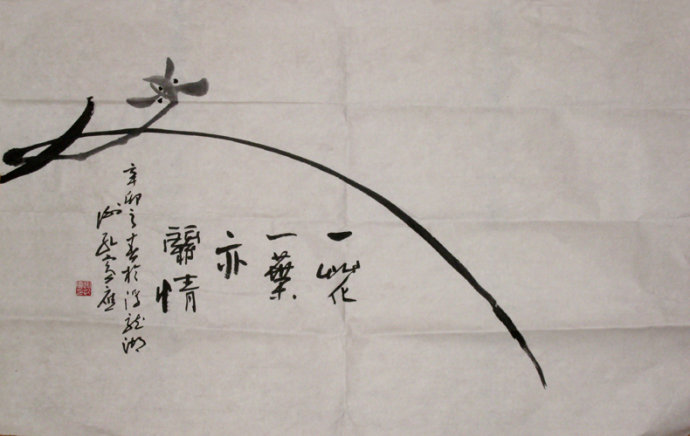 一花
一葉
亦
關情
辛卯之春於浮龍湖